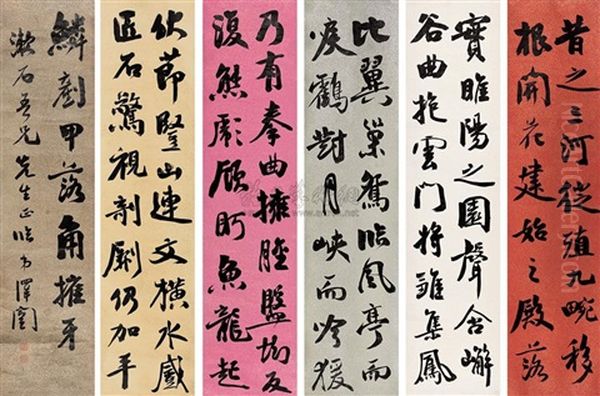 昔之三河徙殖九畹移
根開花建始之殿落
實睢陽之園聲含嶰
谷曲抱雲門將雛集鳳
比翼巢鴛臨風亭而
唳鶴對月峽而吟猨
乃有拳曲擁腫盤坳反
復熊彪顧盻魚龍起
伏節竪山連文橫水蹙
匠石驚視剞劂仍加平
鱗剷甲落角摧牙
漱石吾兄先生正臨 澤闓